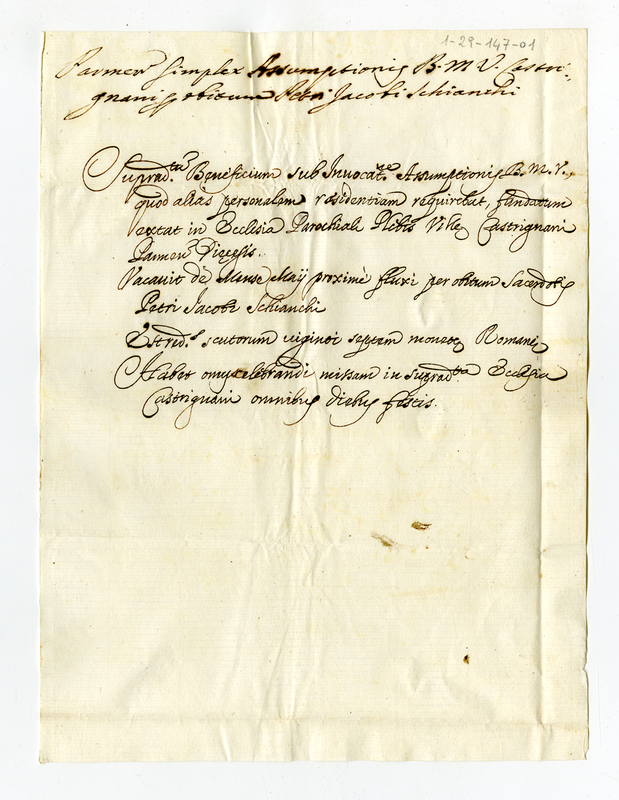 1-29-147-01
Parmen. Simplex Assumptionis B. M. V. Castri-
gnani obitum Petri Jacobi Schianchi
Suprad.tum Beneficium sub Invocat.ne Assumptionis B. M. V.,
quod alias personalem residentiam requirebat, fundatum
extat in Ecclesia Parochiali Plebis Ville Castrignani
Parmen. Diecesis.
Vacavit de Mense Maij proximè fluxi per obitum Sacerdotis
Petri Jacobi Schianchi
Est red. scutorum viginti septem monete Romane
Habet onus celebrandi missam in suprad.ta Ecclesia
Castrignani omnibus diebus festis.